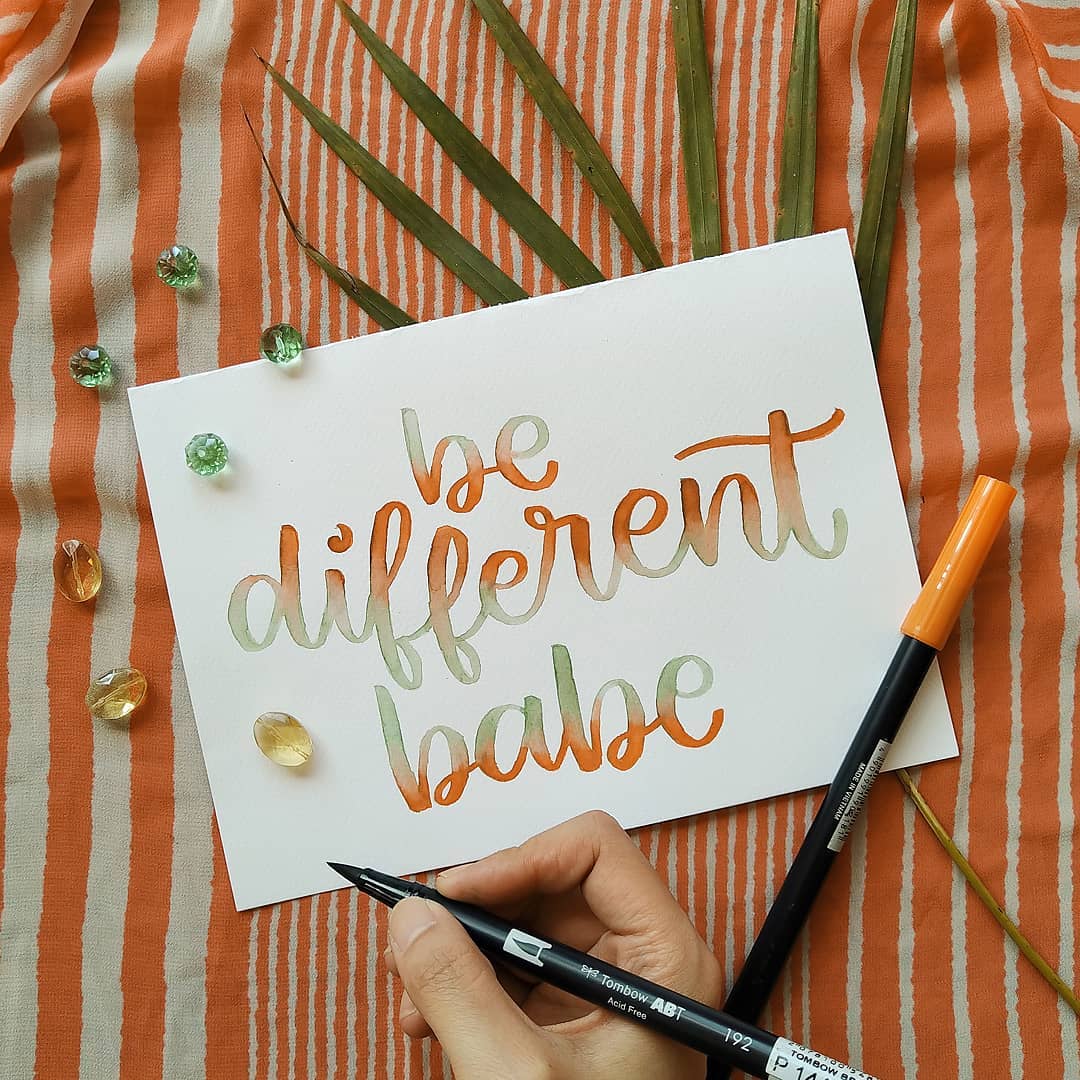 be
different
babe
MADE IN VIETNAM
Tombow ABT
Acid Free
192
TOMBOW